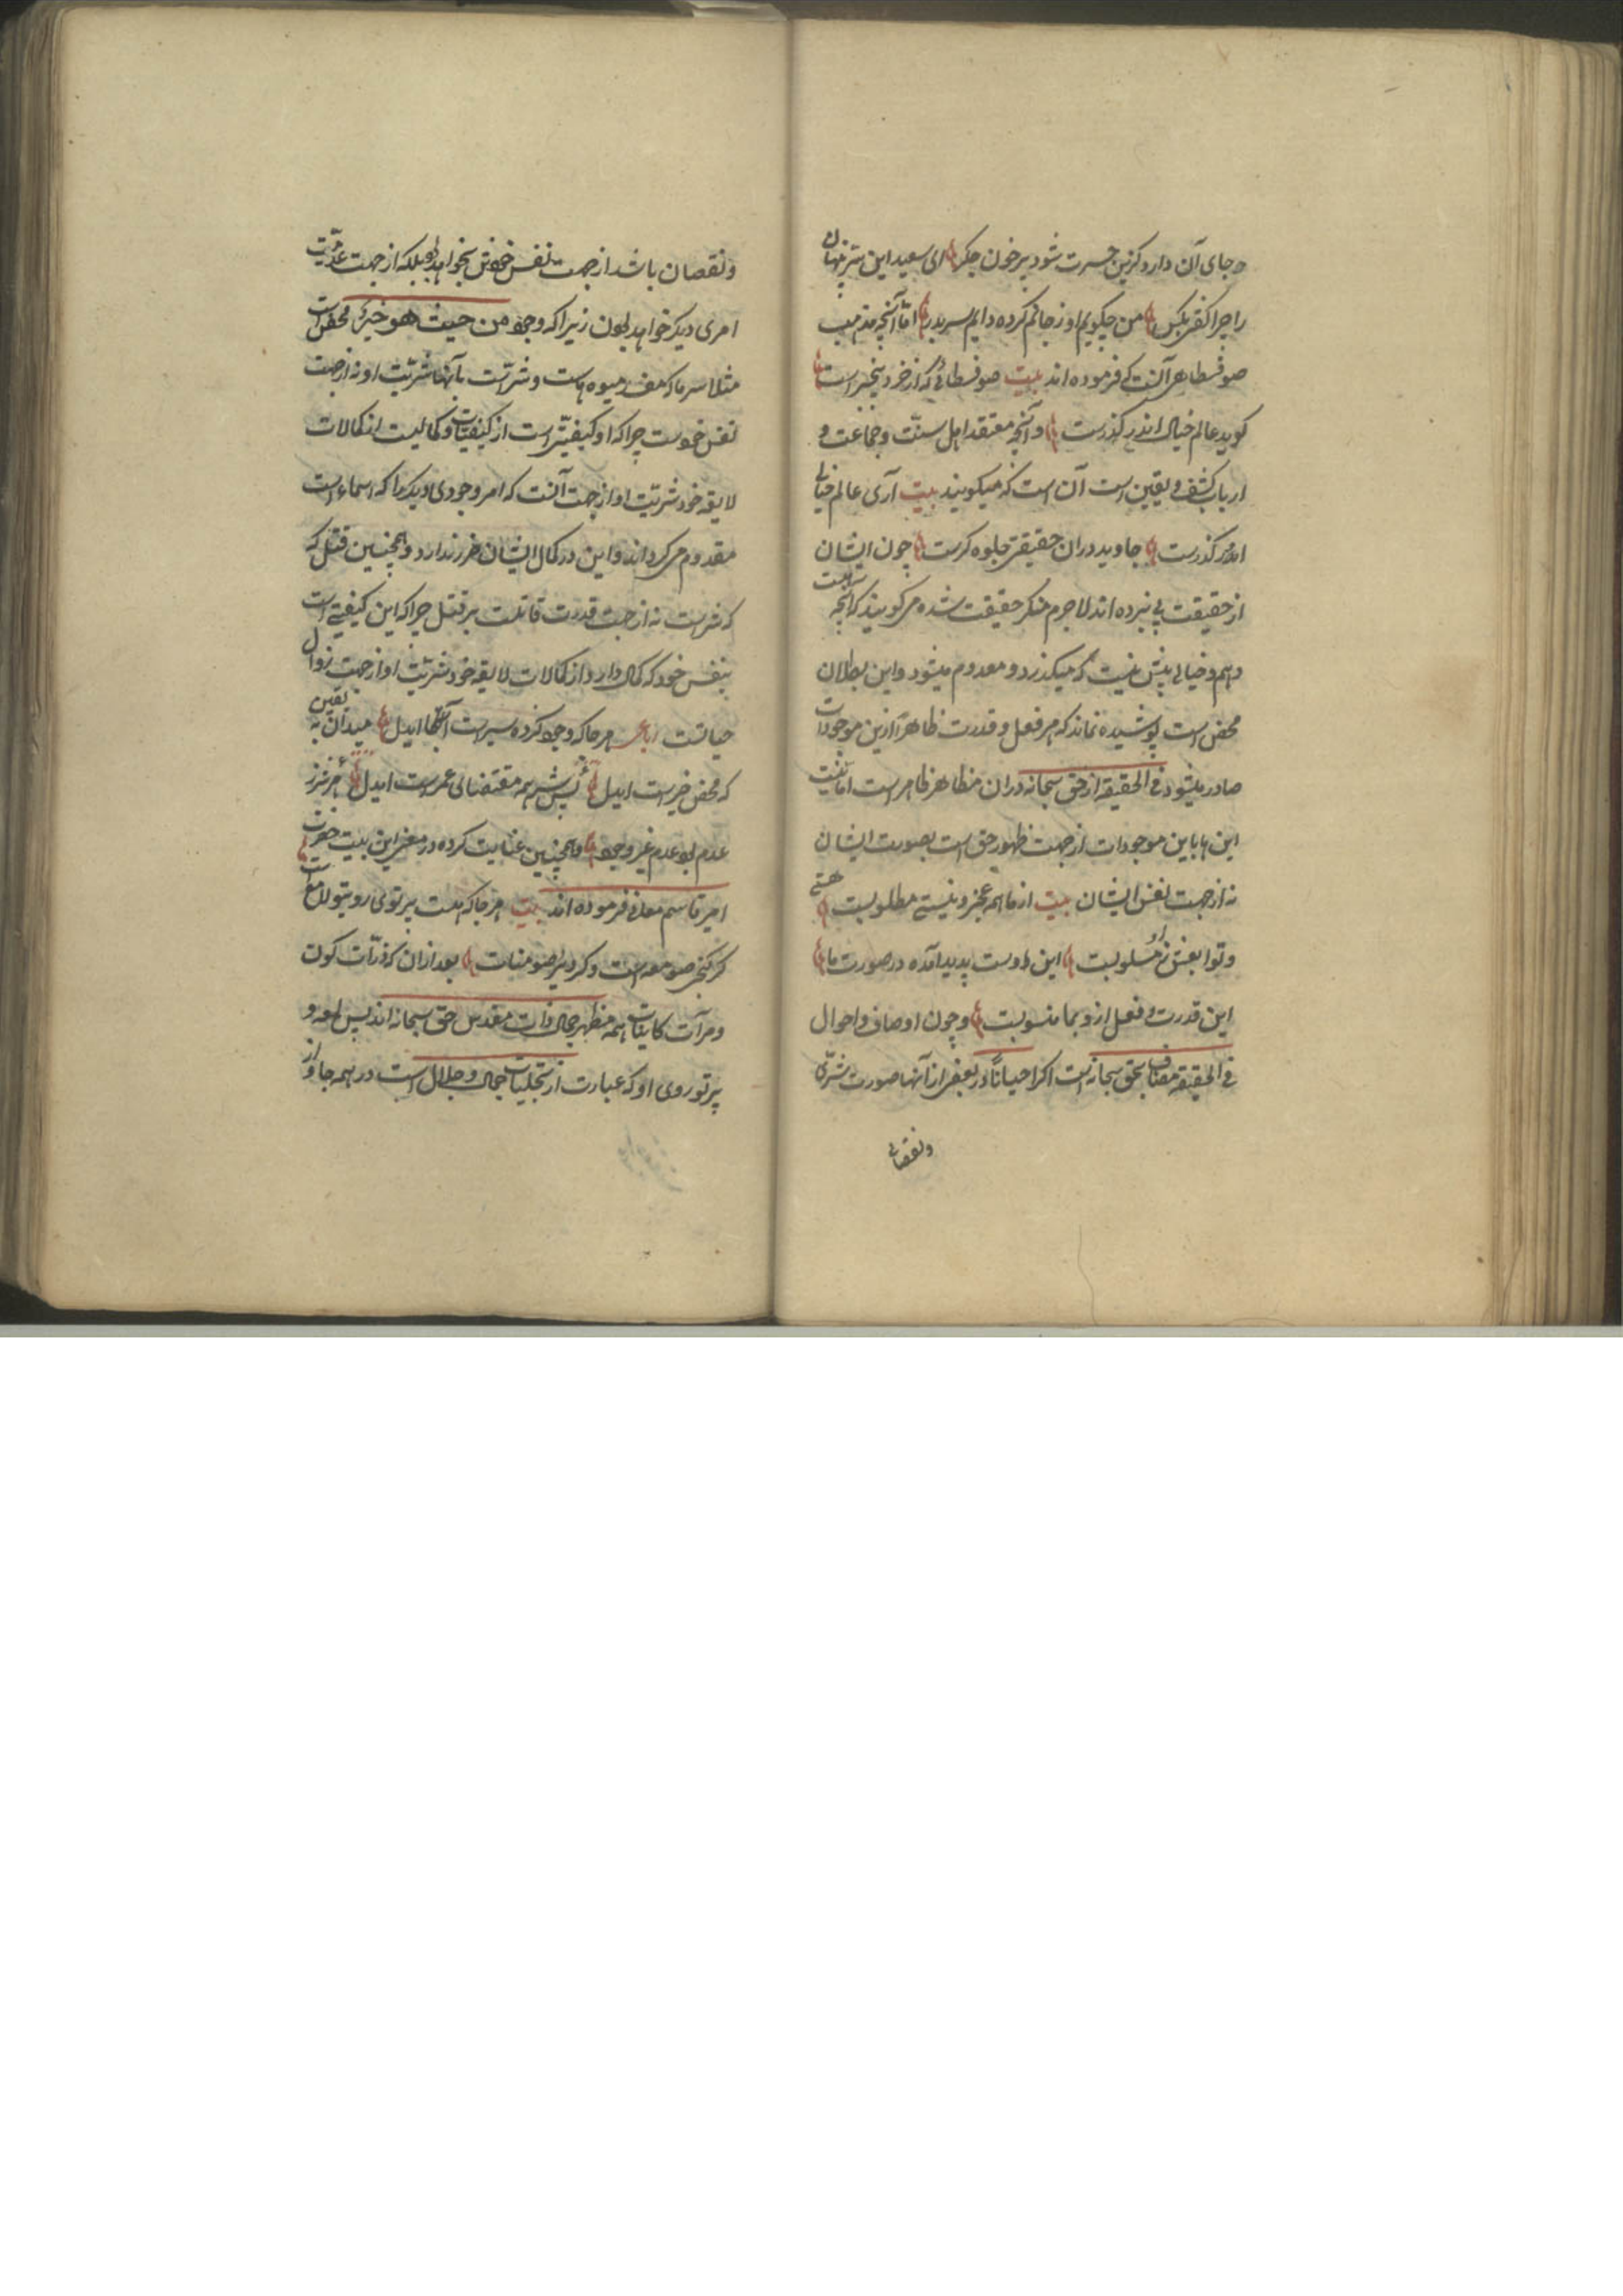 جای آن دارد کزین حسرت شود پر خون جکر ای سعید این سرّ پنهان
را چرا کفتی بکس من چکویم او ز جا کم کرده دایم سر بدر امّا آنچه مذهب
صوفسطاهی آنست که فرموده اند بیت صوفسطائی که از خرد بیخبر است
کوید عالم خیالی اندر کذرست و آنچه معتقد اهل سنّت و جماعت و
ارباب کشف و یقین است آن است که میکویند بیت آری عالم خیالی
اندر کذرست جاوید دران حقیقتی جلوه کرست چون ایشان
از حقیقت پی نبرده اند لاجرم منکر حقیقت شده می کویند که آنچه
وهم و خیالی بیش نیست که میکذرد و معدوم میشود و این بطلان
محض است پوشیده نماند که هر فعل و قدرت ظاهرا ازین موجودات
صادر میشود فی الحقیقة از حق سبحانه دران مظاهر ظاهر است اما نسبت
این ها باین موجودات از جهت ظهور حق است بصورت ایشان
نه از جهت نفس ایشان بیت از ما همه عجز و نیستی مطلوبست هستی
و توابعش ز ما مسلوبست این اوست پدید آمده در صورت ما
این قدرت و فعل ازو بما منسوبست و چون اوصاف و احوال
فی الحقیقة مضاف بحق سبحانه است اکر احیانًا در بعضی از آنها صورت شرّی
ونقصانی
ونقصان باشد از جهت نفس خویش نخواهد بود بلکه از جهت عدمیّت
امری دیکر خواهد بود زیرا که وجود من حیث هو خیر محض است
مثلا سرما که مفسد میوه هاست و شرّ است بآنها شریّت او نه از جهت
نفس خود ست چرا که او کیفیّتی است از کیفیّات و کمالیست از کمالات
لایقه خود شریّت او از جهت آنست که امر وجودی دیکر را که اسماء است
معدوم می کرداند و این در کمال ایشان ضرر ندارد و همچنین قتل که
که شر است نه از جهت قدرت قاتلست بر قتل چرا که این کیفیتی است
بنفس خود که کمالی دارد از کمالات لایقه خود شریّت او از جهت زوال
حیاتست رباعی هر جا که وجود کرده سیر است ای دل میدان به یقین
که محض خیر است ای دل پس شر همه مقتضای عدم است ای دل هر شر ز
عدم بود عدم غیر وجود و همچنین عنایت کرده در معنی این بیت حضرت
امیر قاسم معانی فرموده اند بیت هر جا که هست پرتوی روی تو لامع است
کر کنج صومعه است و کر دیر سومنات بعد ازان که ذرّات کون
و مرآت کاینات همه مظهر جمال ذات مقدس حق سبحانه اند پس لمعه و
پرتو روی او که عبارت از تجلیات جمال و جلال است در همه جا و از